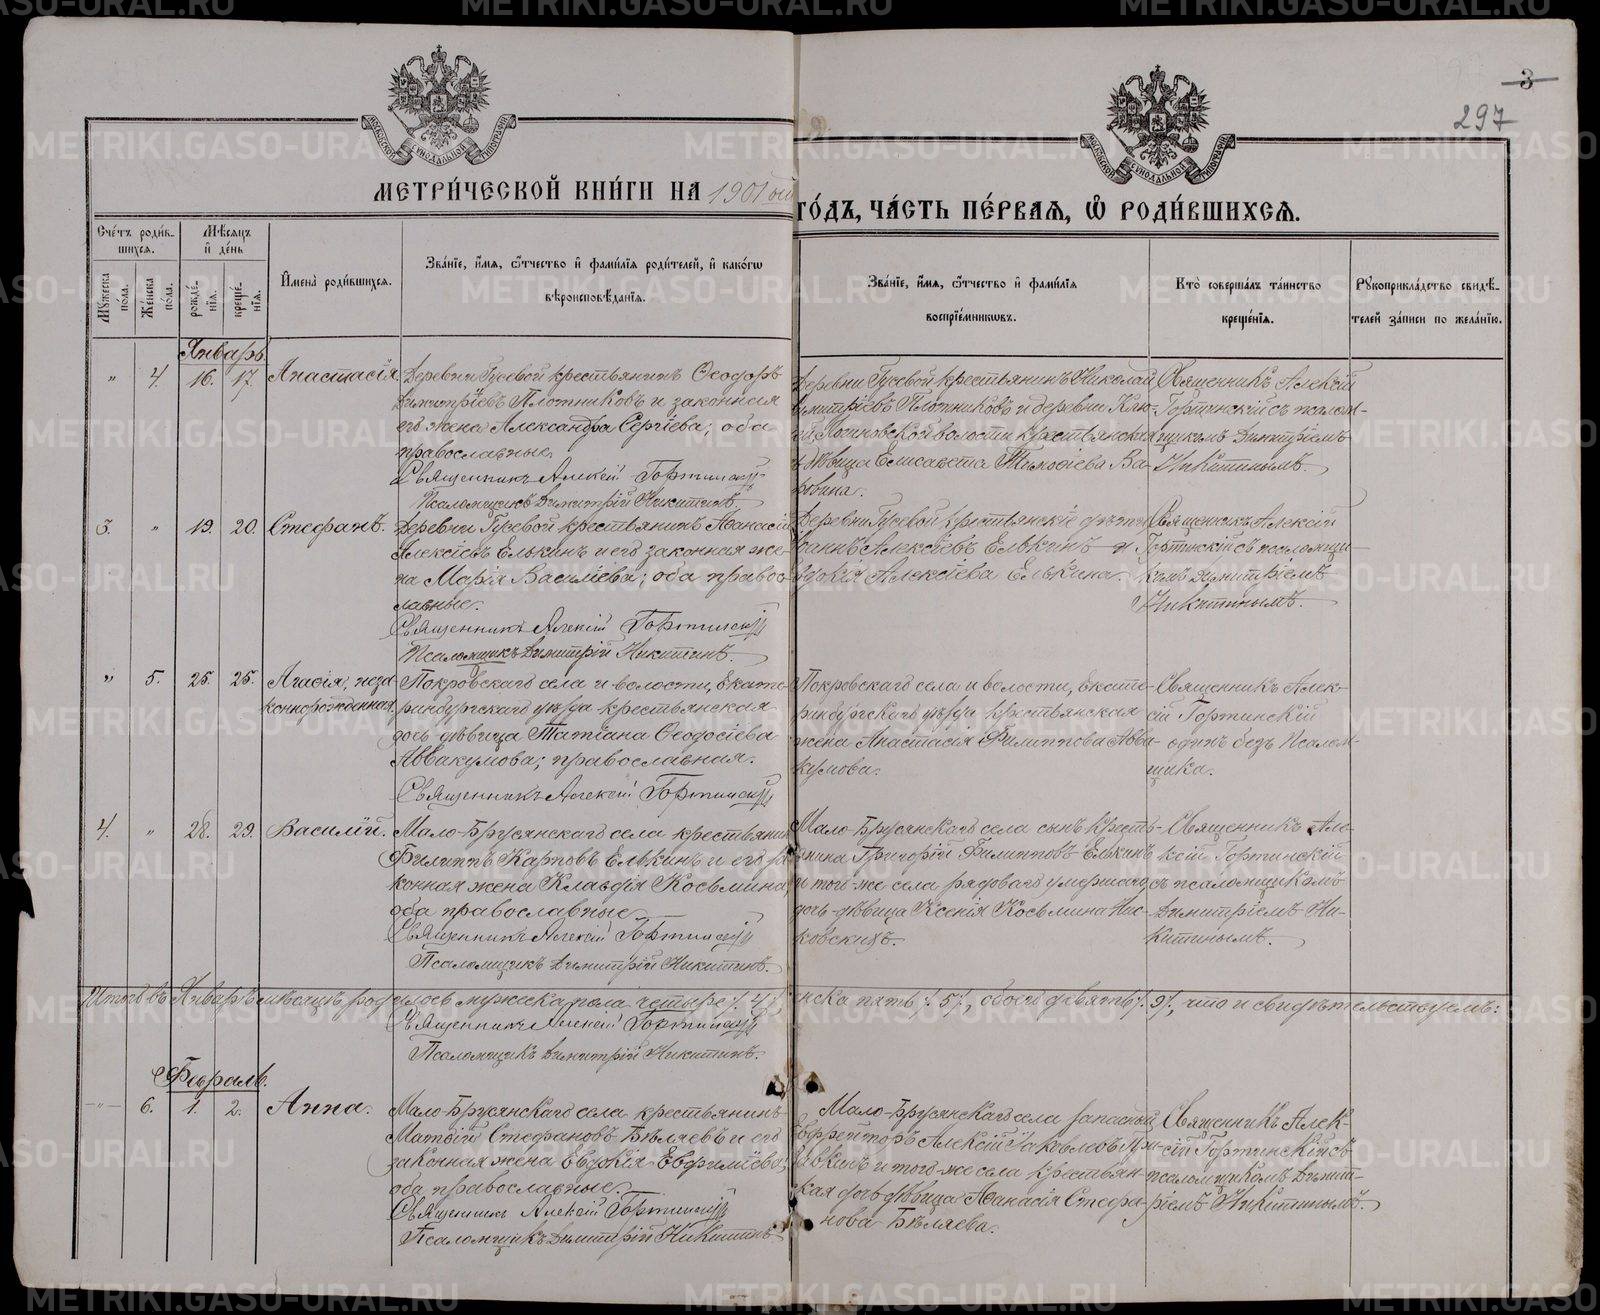 3
297
МОСКОВСКОЙ СѴНОДАЛЬНОЙ ТИПОГРАФІИ
МОСКОВСКОЙ СѴНОДАЛЬНОЙ ТИПОГРАФІИ
МЕТРИ́ЧЕСКОЙ КНИ́ГИ НА 1901 ой
ГО́ДЪ, ЧА́СТЬ ПЕ́РВАѦ, Ѽ РОДИ́ВШИХСѦ.
Сче́тъ роди́в-
шихся.
Мѣ́сяцъ
и҆ де́нь
Мꙋ́жеска по́ла.
Же́нска по́ла.
рожде́нїя.
креще́нїя.
И҆мена̀ роди́вшихся.
Зва́нїе, и҆́мя, ѻ҆́тчество и҆ фами́лїя роди́телей, и҆ како́гѡ
вѣроисповѣ́данїя.
Зва́нїе, и҆́мя, ѻ҆́тчество и҆ фами́лїя
воспрїе́мникѡвъ.
Кто̀ соверша́лъ та́инство
креще́нїя.
Рꙋкоприкла́дство свидѣ́-
телей за́писи по жела́нїю.
Январь.
" 4. 16. 17. Анастасія.
Деревни Гусевой крестьянинъ Ѳеодоръ
Димитріевъ Плотниковъ и законная
его жена Александра Сергіева; оба
православные.
Священникъ Алексій Гортинскій
Псаломщикъ Димитрій Никитинъ.
Деревни Гусевой крестьянинъ Николай
Димитріевъ Плотниковъ и деревни Клю-
волости крестьянская
дѣвица Елисавета Тимоѳіева Ва-
Священникъ Алексій
Гортинскій съ псалом-
щикомъ Димитріемъ
Никитинымъ.
3. " 19. 20. Стефанъ.
Деревни Гусевой крестьянинъ Аѳанасій
Алексіевъ Елькинъ и его законная же-
на Марія Василіева; оба правос-
лавные.
Священникъ Алексій Гортинскій
Псаломщикъ Димитрій Никитинъ.
Деревни Гусевой крестьянскіе дѣти
Іоаннъ Алексіевъ Елькинъ и
Евдокія Алексіева Елькина.
Священникъ Алексій
Гортинскій съ псаломщи-
комъ Димитріемъ
Никитинымъ.
" 5. 25. 25. Агаѳія, неза-
коннорожденная.
Покровскаго села и волости, Екате-
ринбургскаго уѣзда крестьянская
дочь дѣвица Татіана Ѳеодосіева
Аввакумова; православная.
Священникъ Алексій Гортинскій
Покровскаго села и волости, Екате-
ринбургскаго уѣзда крестьянская
жена Анастасія Филиппова Авва-
кумова.
Священникъ Алек-
сій Гортинскій
одинъ безъ псалом-
щика.
4. " 28. 29. Василій.
Мало-Брусянскаго села крестьянинъ
Филиппъ Карповъ Елькинъ и его за-
конная жена Клавдія Косьмина,
оба православные
Священникъ Алексій Гортинскій
Псаломщикъ Димитрій Никитинъ.
Мало-Брусянскаго села сынъ кресть-
янина Григорій Филипповъ Елькинъ
и того-же села рядоваго умершаго
дочь-дѣвица Ксенія Косьмина Пис-
ковскихъ.
Священникъ Але-
ксій Гортинскій
съ псаломщикомъ
Димитріемъ Ни-
китинымъ.
Итого въ Январѣ мѣсяцѣ родилось мужеска пола четыре /4/, женска пять /5/, обоего девять /9/, что и свидѣтельствуемъ:
Священникъ Алексій Гортинскій
Псаломщикъ Димитрій Никитинъ.
Февраль.
—"— 6. 1. 2. Анна.
Мало-Брусянскаго села крестьянинъ
Матѳій Стефановъ Бѣляевъ и его
законная жена Евдокія Евфиміева,
оба православные.
Священникъ Алексій Гортинскій
Псаломщикъ Димитрій Никитинъ
Мало-Брусянскаго села запасный
Ефрейторъ Алексій Іаковлевъ
и того-же села крестьян-
ская дочь дѣвица Аѳанасія Стефа-
нова Бѣляева.
Священникъ Алек-
сій Гортинскій съ
псаломщикомъ Димит-
ріемъ Никитинымъ.
METRIKI.GASO-URAL.RU